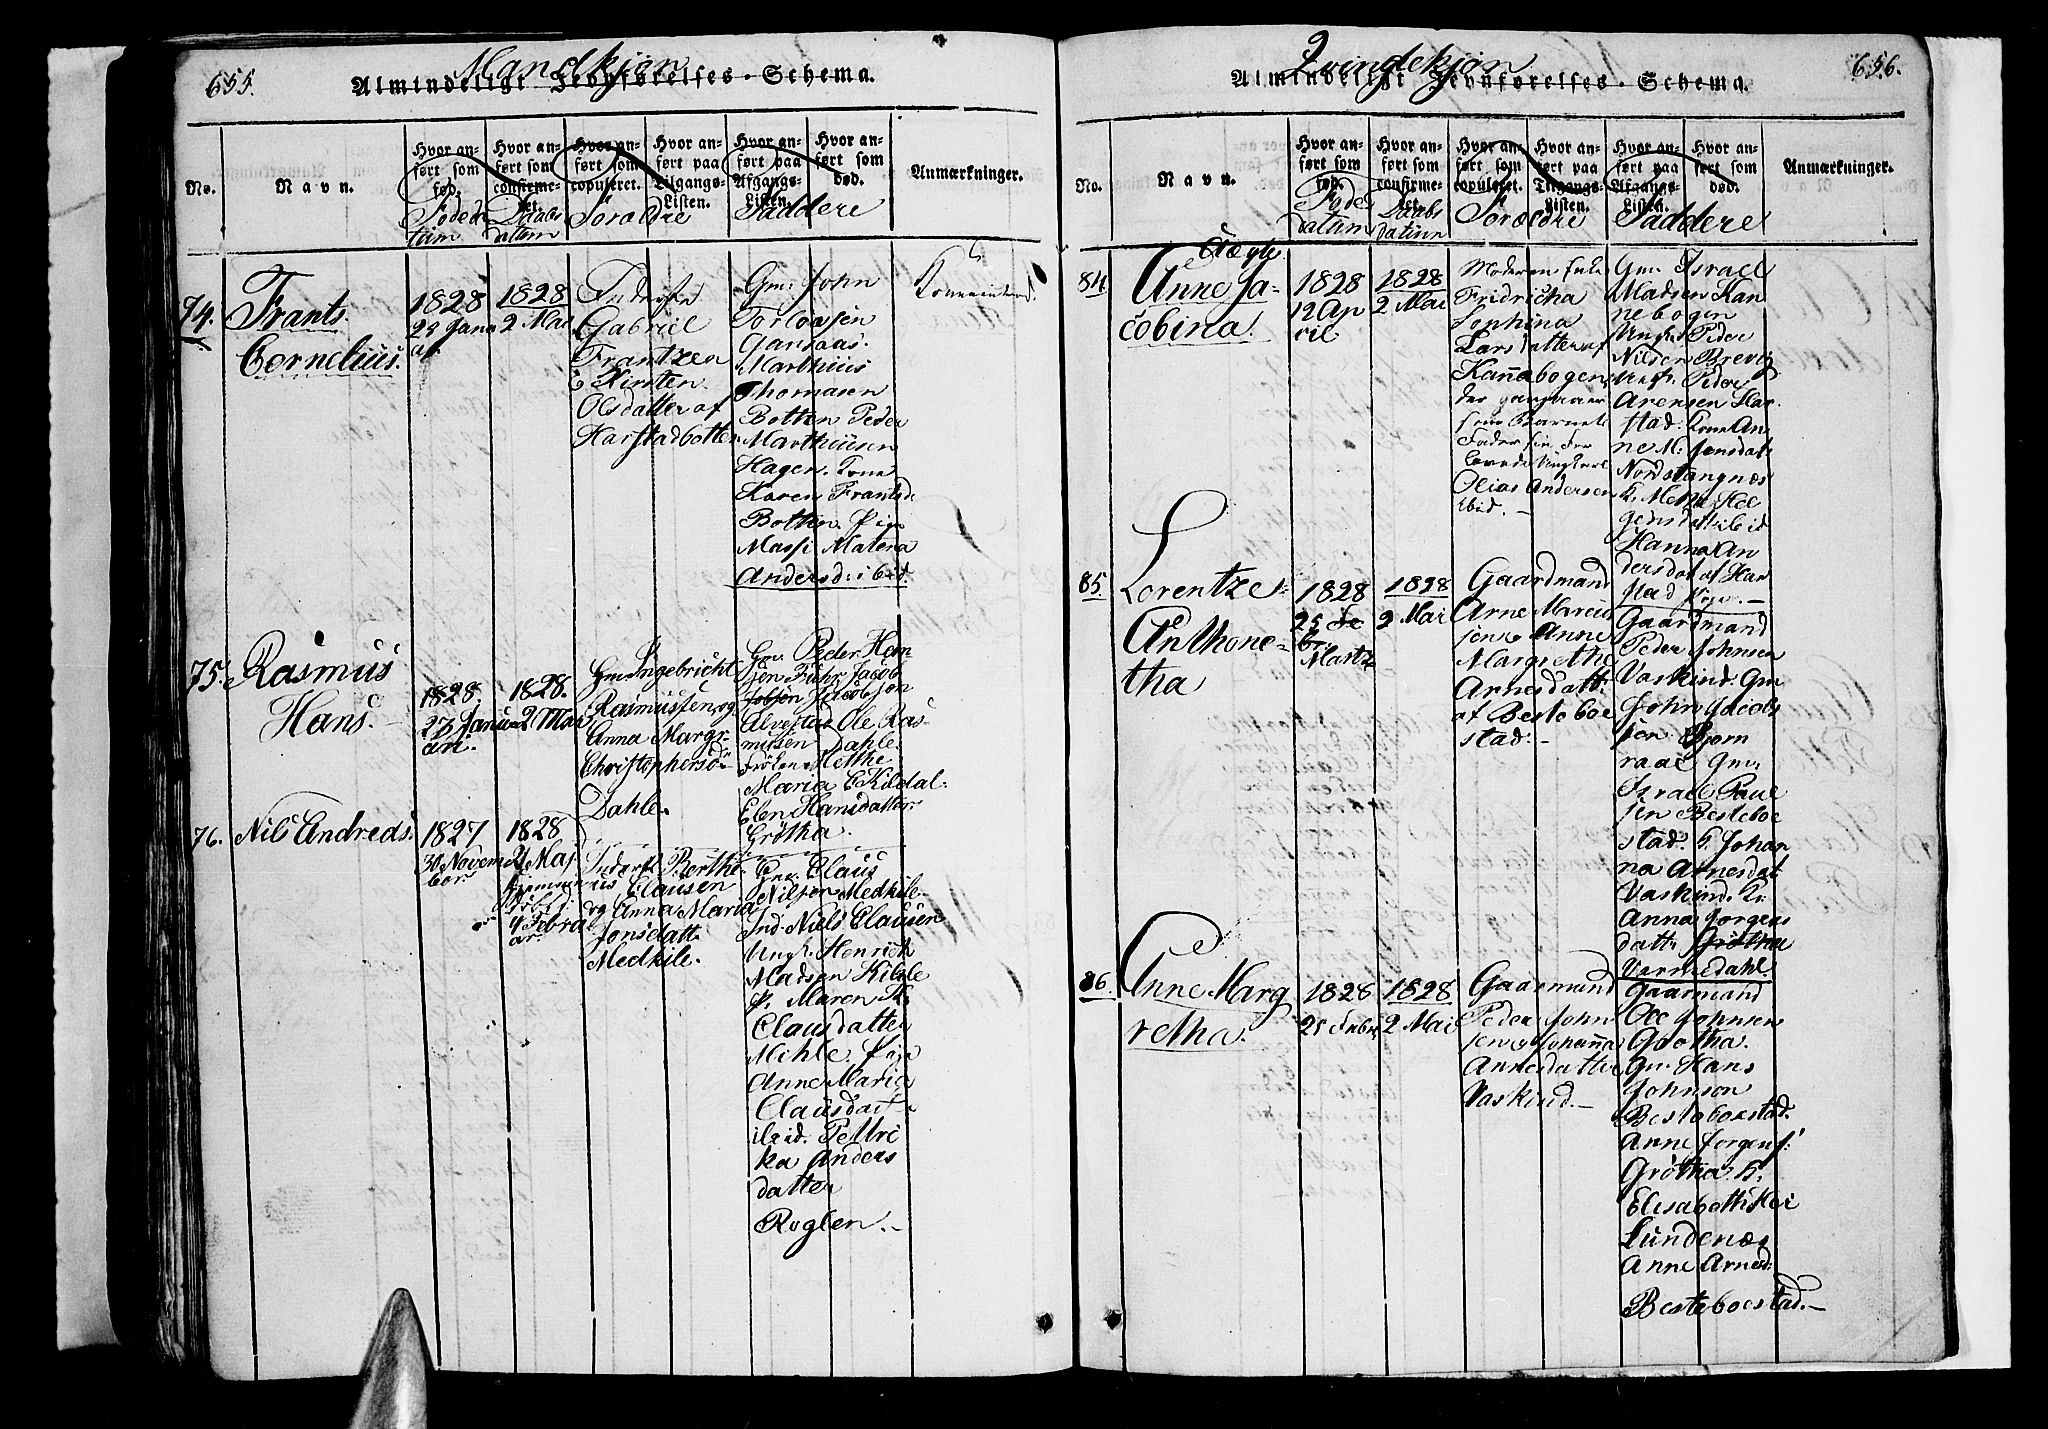 655.
Mandkjön
Almindeligt Jevnførelses-Schema.
No.
Navn.
Hvor an-
ført som
fød.
Födeda
tum
Hvor an-
ført som
confirme-
ret.
Daabs
dattum
Hvor an-
ført som
copuleret.
Hvor an-
ført paa
Tilgangs-
Listen.
Foreldre
Hvor an-
ført paa
Afgangs-
Listen.
Hvor an-
ført som
død.
Faddere
Anmærkninger.
74.
Frants
Cornelius.
1828
29 Janu
ar
1828
2 Mai
Inderste
Gabriel
Frantzen
& Kirsten
Olsdatter af
Harstadbotten
Gm: John
Torlovsen
Gansaas.
Marthius
Thomasen
Botten Peder
Marthiusen
Hagen. Kone
Karen Frantsd.
Botten Pige
Massi Matena
Andersd: ibid.
75.
Rasmus
Hans.
1828
27 Janu
ari.
1828.
2 Mai
Gm: Ingebricht
Rasmussen og
Anna Margr:
Christophersd
Dahle.
Gm: Peder Hem
Jacob
Jacobsen
Alvestad Ole Ras-
musen Dahle.
Fröken Mette
Maria E Kildal.
Elen Hansdatter
Grötha.
76.
Nils Andreas.
1827
30 Novem
ber.
1828
2 Mai
4 Febru
ar.
Inderst Berthe-
us Clausen
og Anna Maria
Jonsdatt.
Medkile.
Gm. Claus
Nilsen Medkile.
Ind. Niels Clausen
Ungk. Henrich
Madsen Kihle
P. Maren K.
Clausdatter
Mihle. Pige
Anne Maria
Clausdat
ibid. Pettri
ka Anders
datter
Roglen.-
656.
Qvindekjön
Almindeligt Jevnførelses-Schema.
No.
Navn.
Hvor an-
ført som
fød.
Föde
datum
Hvor an-
ført som
confirme-
ret.
Daabs
datum
Hvor an-
ført som
copuleret.
Hvor an-
ført paa
Tilgangs-
Listen.
Foreldre
Hvor an-
ført paa
Afgangs-
Listen.
Hvor an-
ført som
død.
Faddere
Anmærkninger.
84
Uægte
Anne Ja-
cobina.
1828
12 Ap
ril
1828
2 Mai
Moderen Enke
Fridricha
Sophina
Lars datter af
Kannebogen
Fader
Olias Andersen
ibid. -
Gm: Israel
Madsen Kan
nebogen
Ungk: Peder
Nilsen Brevig
Ungk. Peder
Arensen Har
stad. Kone An
ne M. Jonsdat.
Nordstangnes
K. Mette Hel
gensdatt ibid
Hanna An
dersdat af Har
stad Pige. -
85
Lorentze
Anthone-
tha
1828
25 Fe
br.
Martz
1828
2 Mai
Gaardmand
Arne Marcus
sen & Anne
Margrethe
Arnesdatt:
af Besteboe
stad. -
Gaardmand
Peder Johnsen
Vaskind. Gm
John Jacob
sen Bjorn
raae Gm:
Israel Paul
sen Besteboe
stad. K. Johan
na Arnesdat
Vaskind. K.
Anna Jorgens
datt. Grötha
Vermedahl.
86.
Anne Marg
retha.
1828
25 Febr
1828
2 Mai
Gaarmand
Peder John
sen & Johanna
Arnesdatter
Vaskind. -
Gaarmand
Ole Johnsen
Grötha.
Gm. Hans
Johnson
Besteboestad.
Anne Jorgens:
Grötha. K.
Elisabeth
Lundenæs
Anne Arnesd:
Besteboestad. -